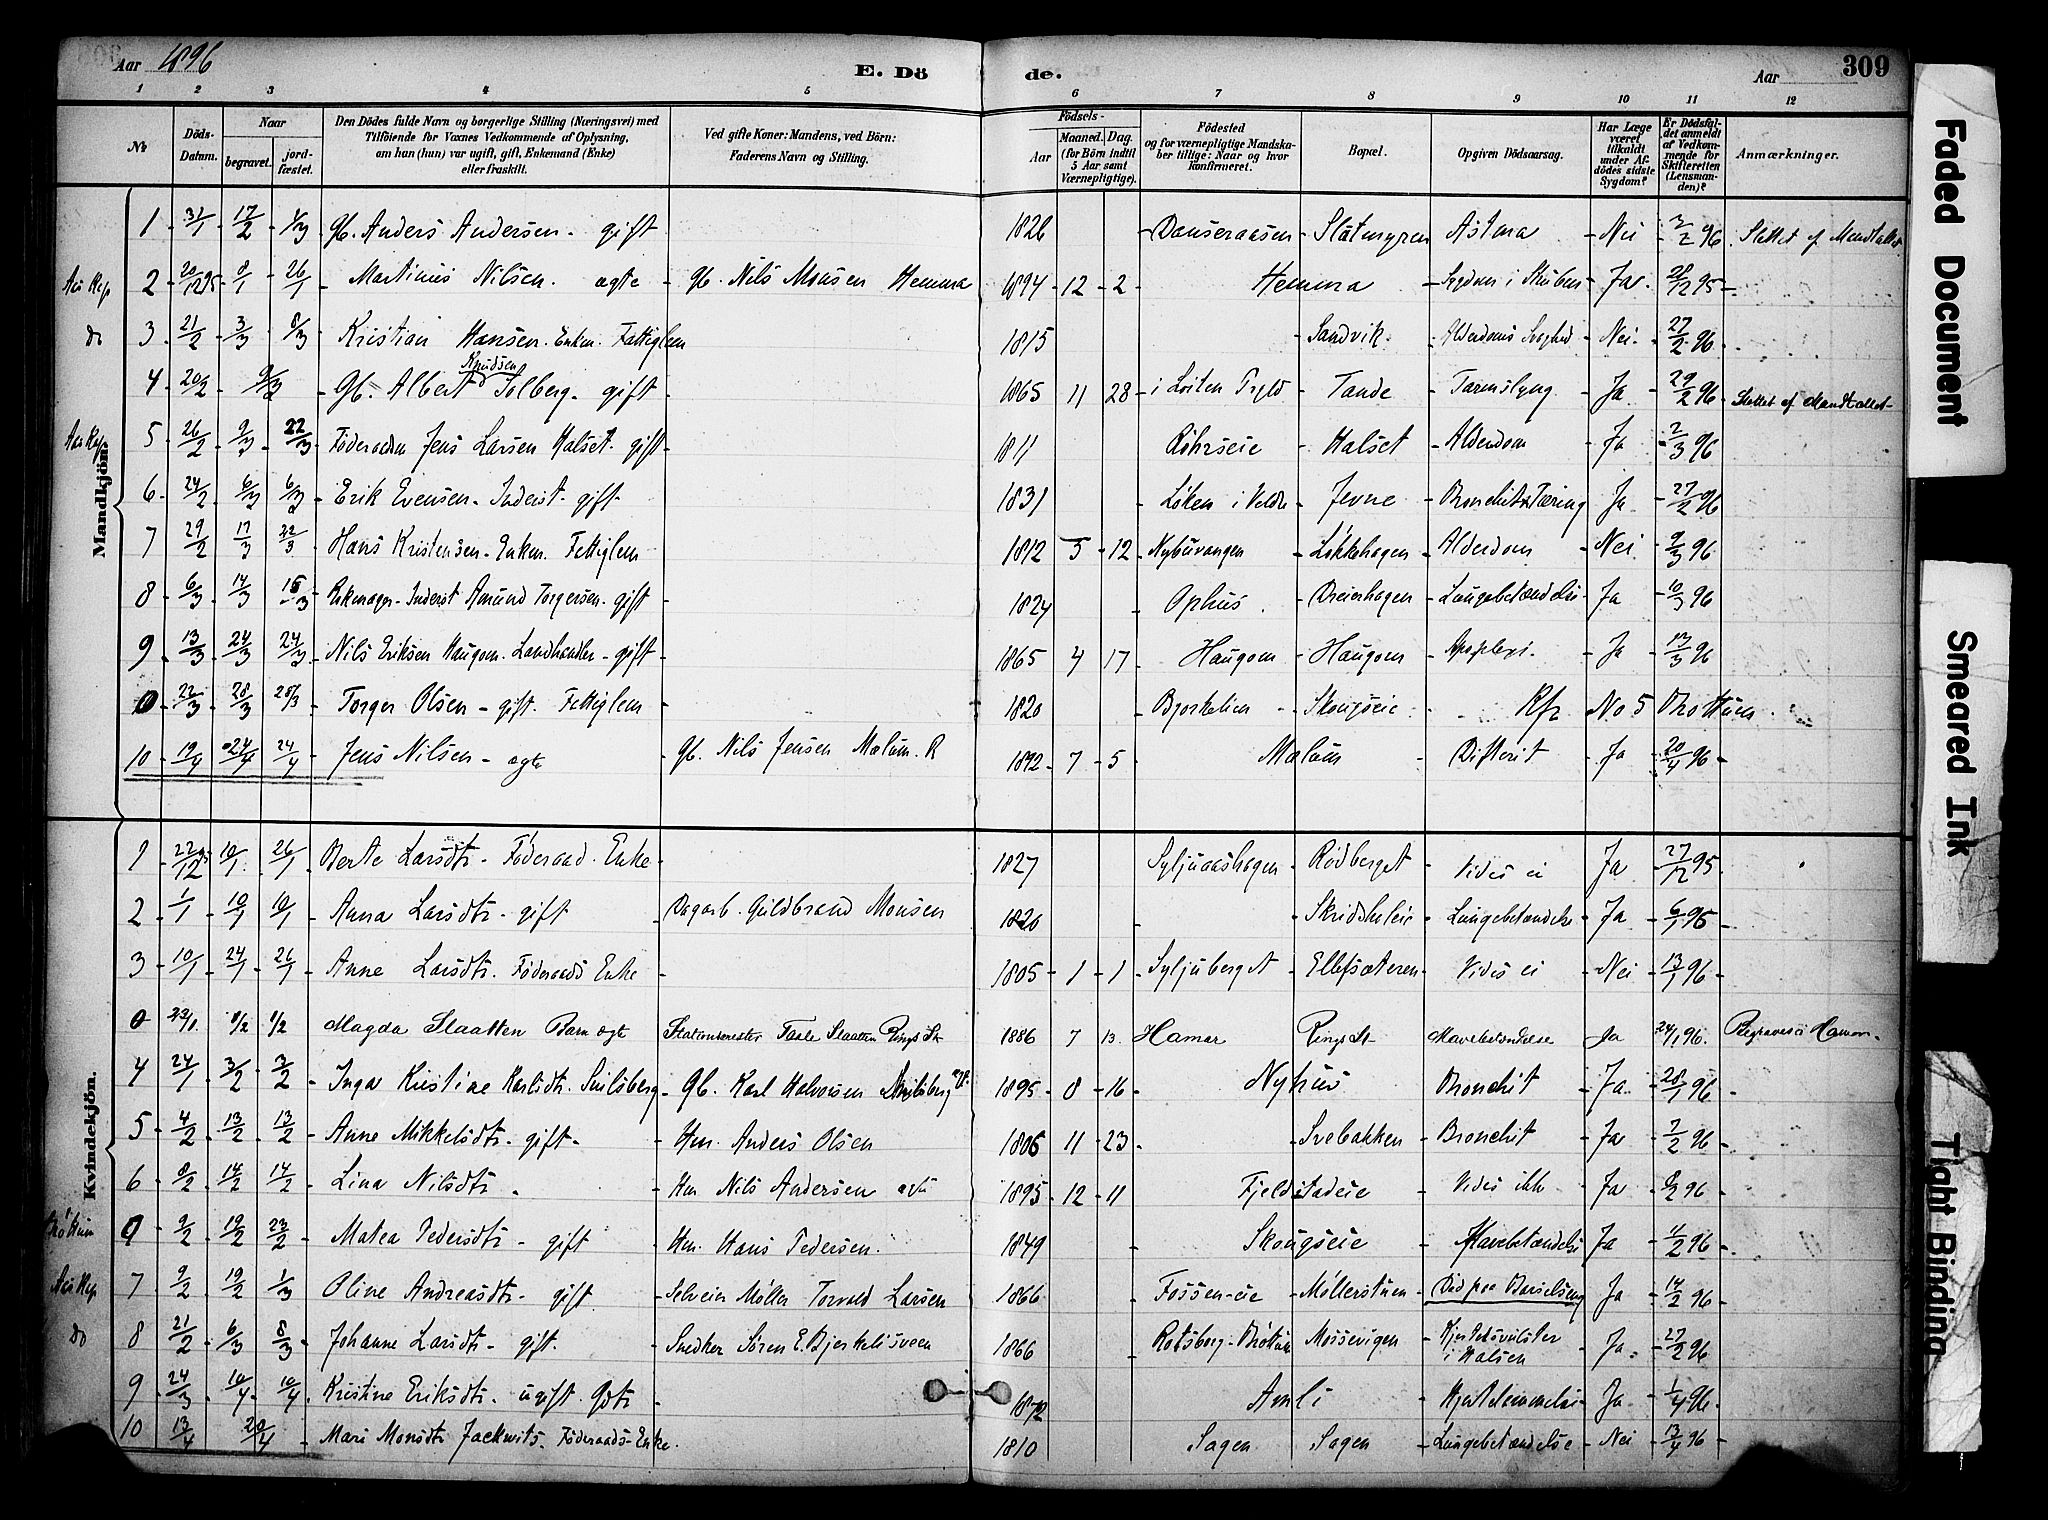 Aar 1896 E. Dö de. Aar 309
1 2 3 4 5 6 7 8 9 10 11 12
№ Döds-Datum. Naar begravet. jordfæstet. Den Dödes fulde Navn og borgerlige Stilling (Næringsvei) med Tilföiende for Voxnes Vedkommende af Oplysning, om han (hun) var ugift, gift, Enkemand (Enke) eller fraskilt. Ved gifte Koner: Mandens, ved Börn: Faderens Navn og Stilling. Födsels- Aar Maaned. Dag. (for Börn indtil 5 Aar samt Værnepligtige). Födested og for værnepligtige Mandskaber tillige: Naar og hvor konfirmeret. Bopæl. Opgiven Dödsaarsag. Har Læge været tilkaldt under Afdödes sidste Sygdom? Er Dödsfaldet anmeldt af Vedkommende for Skifteretten (Lensmanden)? Anmærkninger.
Mandkjön.
1 31/1 17/2 1/3 Gb. Anders Andersen - gift 1826 Danseraasen Slåtmyren Astma Nei 3/2 96 Slettet af Mandtallet
2 20/12 95 8/1 26/1 Martinus Nilsen. ægte Gb. Nils Monsen Hemma 1894 12 2 Hemma Ja 28/12 95
do 3 21/2 3/3 8/3 Kristian Hansen. Enkm. Fattiglem 1815 Sandvik Alderdoms Svaghed Nei 27/2 96
4 20/2 9/3 Gb. Albert Knudsen Solberg - gift 1865 11 28 i Løiten Tande Tarmslyng Ja 29/2 96 Slettet af Mandtallet
5 26/2 9/3 22/3 Föderaadm Jens Larsen Halset - gift 1811 Röhrseie Halset Alderdom Ja 2/3 96
6 24/2 6/3 6/3 Erik Evensen - Inderst - gift 1831 Löken i Veldre Jevne Bronchit & Tæring Ja 27/2 96
7 29/2 17/3 22/3 Hans Kristensen - Enkm. Fattiglem 1812 5 12 Nybuvangen Løkkehagen Alderdom Nei 9/3 96
8 6/3 14/3 15/3 Inderst Amund Torgersen - gift 1824 Ophus Dreierhagen Lungebetændelse Ja 10/3 96
9 13/3 24/3 24/3 Nils Eriksen Haugom. Landhandler - gift 1865 4 17 Haugom Haugom Apoplexi. Ja 17/3 96
0 22/3 28/3 28/3 Torger Olsen - gift. Fattiglem 1820 Bjørkelien Skougseie Kfr No 5 Brøttum
10 19/4 24/4 24/4 Jens Nilsen - ægte Gb. Nils Jensen Mælum. R 1892 7 5 Mælum Difterit Ja 20/4 96
Kvindekjön.
1 22/12 95 10/1 26/1 Berte Larsdtr - Föderaad. Enke 1827 Syljuaashagen Rødberget Vides ei Ja 27/12 95
2 1/1 10/1 10/1 Anna Larsdtr - gift Dagarb. Guldbrand Monsen 1820 Lungebetændelse Ja 6/1 96
3 10/1 24/1 26/1 Anne Larsdtr. Föderaads Enke 1805 1 1 Syljuberget Ellefsæteren Vides ei Nei 13/1 96
0 23/1 1/2 1/2 Magda Slaatten Barn ægte Stationsmester Slaatten Rings St 1886 7 13 Hamar Rings St Mavebetændelse Ja 24/1 96. Begraves i Hamar.
4 24/1 3/2 3/2 Inga Kristine Karlsdtr. Smidsberg Gb. Karl Halvorsen 1895 8 16 Nyhus Bronchit Ja 28/1 96
5 4/2 13/2 13/2 Anne Mikkelsdtr - gift Hm. Anders Olsen 1806 11 23 Svebakken Bronchit Ja 7/2 96
6 8/2 14/2 14/2 Lina Nilsdtr Hm Nils Andersen ægte 1895 12 11 Fjeldstadeie Vides ikke Ja 8/2 96
Brøttum 0 9/2 19/2 23/2 Matea Pedersdtr - gift Hm. Hans Pedersen 1849 Skougseie Mavebetændelse Ja 11/2 96
7 9/2 19/2 1/3 Oline Andreasdtr - gift Selveier Møller Torvald Larsen 1866 Fossen-eie Møllerstuen Død paa Barselseng Ja 14/2 96
do 8 21/2 6/3 8/3 Johanne Larsdtr - gift. Snedker Sören E. Bjerkelisveen 1866 Rotsberg - Brøttum Mossevigen Kjertelsvulster i Halsen Ja 27/2 96
9 24/3 10/4 10/4 Kristine Eriksdtr - ugift Gdtr 1872 Amli Ja 1/4 96
10 13/4 20/4 Mari Monsdtr Föderaads-Enke. 1810 Sagen Sagen Lungebetændelse Nei 13/4 96
Faded Document
Smeared Ink
Tight Binding